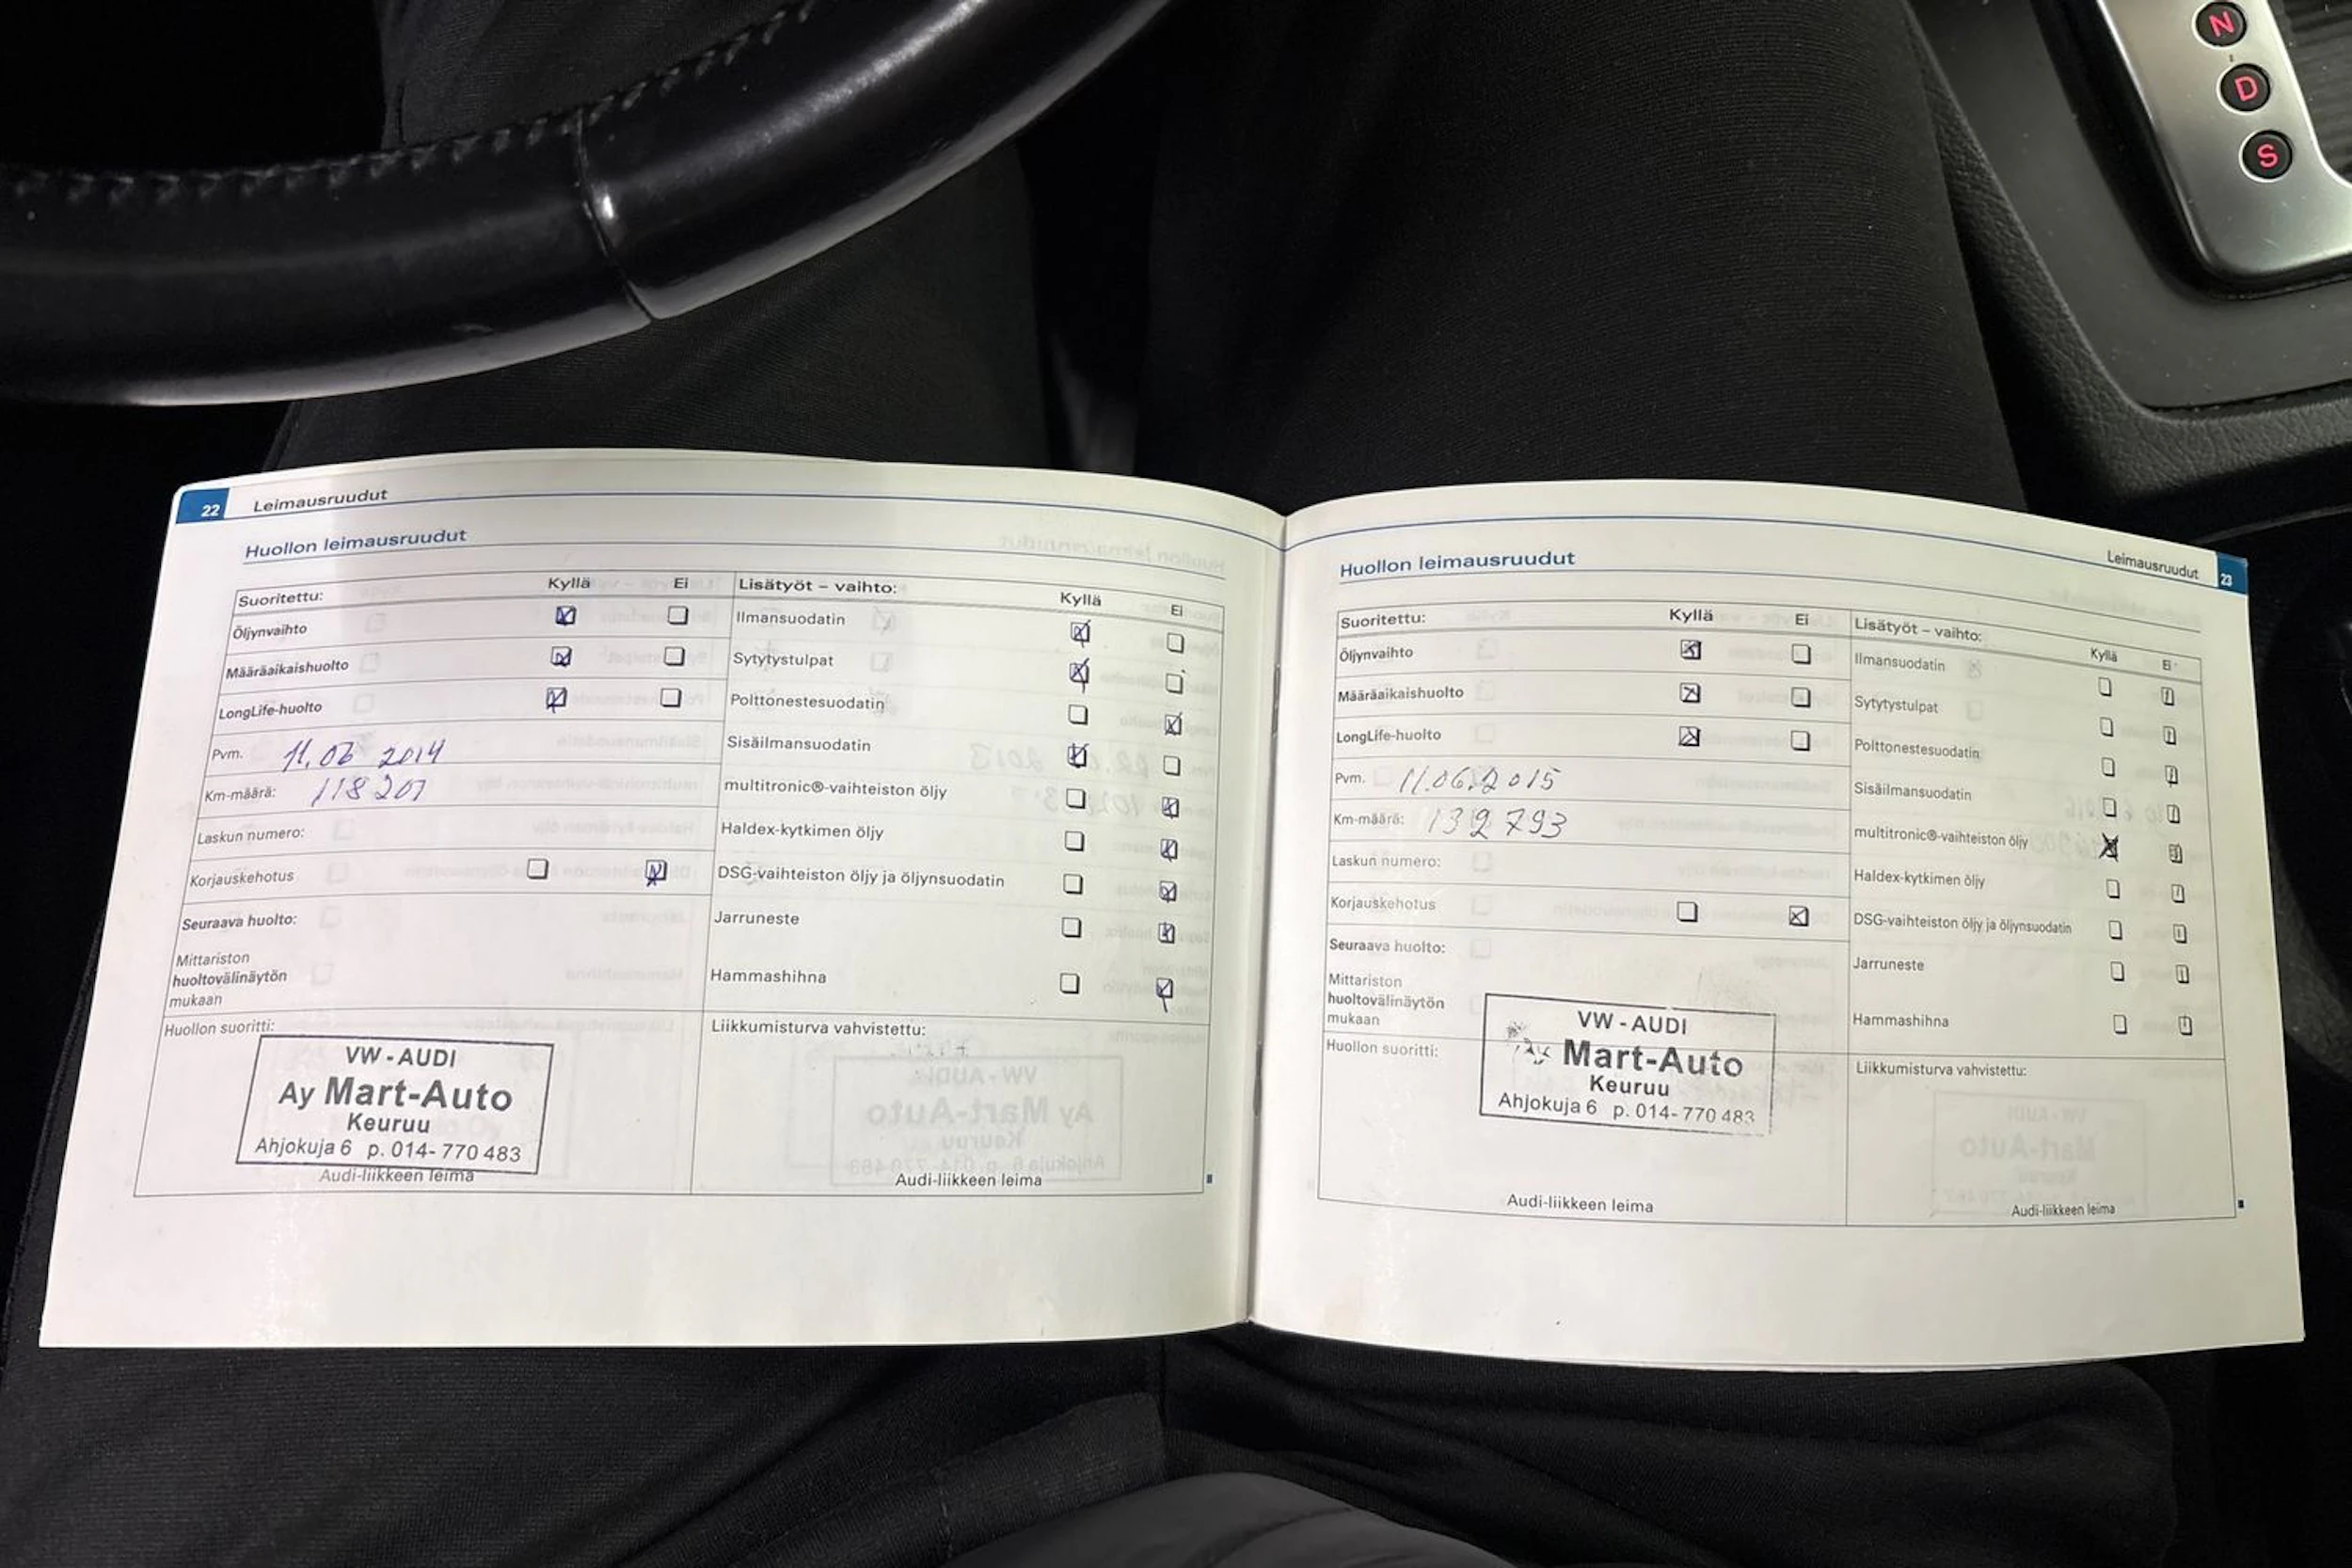 N
D
S
22 Leimausruudut
Huollon leimausruudut
Suoritettu: Kyllä Ei
Öljynvaihto
Määräaikaishuolto
LongLife-huolto
Pvm. 11.06 2014
Km-määrä: 118 201
Laskun numero:
Korjauskehotus
Seuraava huolto:
Mittariston
huoltovälinäytön
mukaan
Huollon suoritti:
VW - AUDI
Ay Mart-Auto
Keuruu
Ahjokuja 6 p. 014- 770 483
Audi-liikkeen leima
Lisätyöt – vaihto: Kyllä Ei
Ilmansuodatin
Sytytystulpat
Polttonestesuodatin
Sisäilmansuodatin
multitronic®-vaihteiston öljy
Haldex-kytkimen öljy
DSG-vaihteiston öljy ja öljynsuodatin
Jarruneste
Hammashihna
Liikkumisturva vahvistettu:
Audi-liikkeen leima
Leimausruudut 23
Huollon leimausruudut
Suoritettu: Kyllä Ei
Öljynvaihto
Määräaikaishuolto
LongLife-huolto
Pvm. 11.06.2015
Km-määrä: 132 793
Laskun numero:
Korjauskehotus
Seuraava huolto:
Mittariston
huoltovälinäytön
mukaan
Huollon suoritti:
VW - AUDI
Mart-Auto
Keuruu
Ahjokuja 6 p. 014- 770 483
Audi-liikkeen leima
Lisätyöt – vaihto: Kyllä Ei
Ilmansuodatin
Sytytystulpat
Polttonestesuodatin
Sisäilmansuodatin
multitronic®-vaihteiston öljy
Haldex-kytkimen öljy
DSG-vaihteiston öljy ja öljynsuodatin
Jarruneste
Hammashihna
Liikkumisturva vahvistettu:
Audi-liikkeen leima